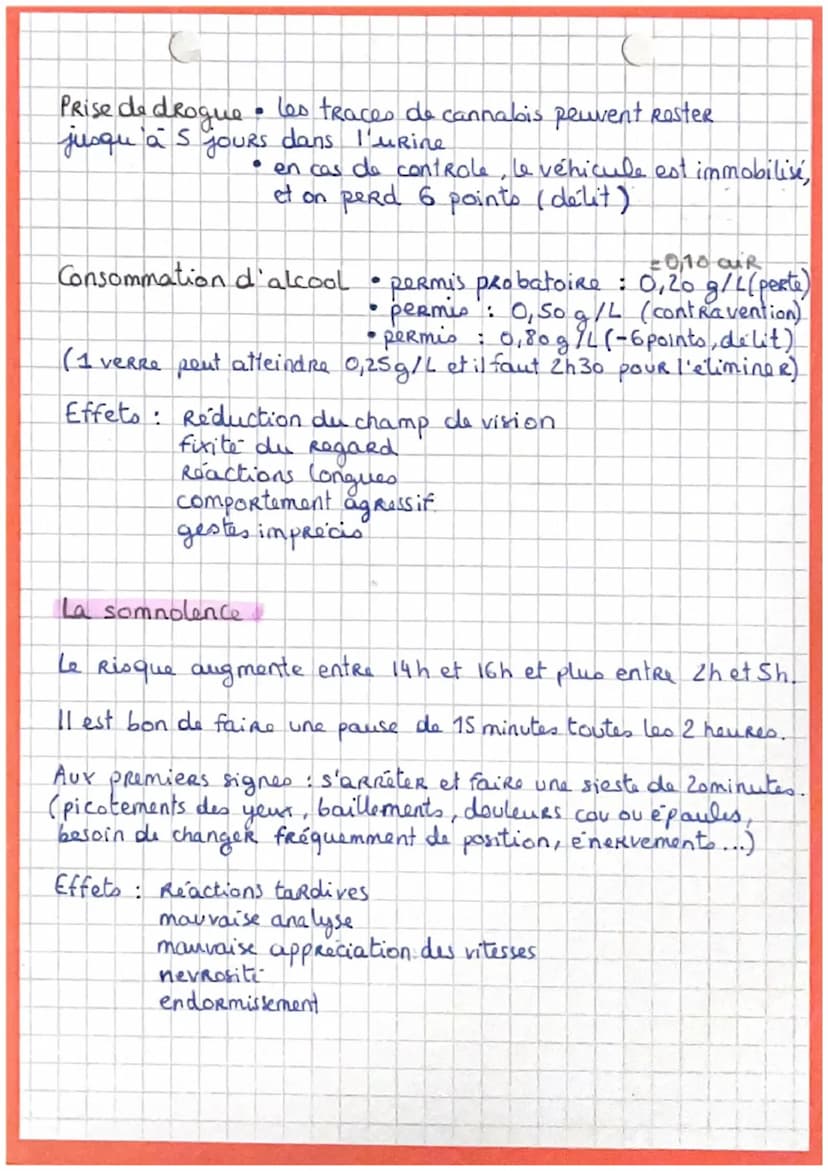 Prise de drogue • les traces de cannabis peuvent rester
jusqu'à 5 jours dans l'urine
• en cas de controle, le véhicule est immobilisé,
et on perd 6 points (délit)
= 0,10 air
Consommation d'alcool • permis probatoire : 0,20 g/L (perte)
• permis : 0,50 g/L (contravention)
• permis : 0,80 g/L (-6 points, délit)
(1 verre peut atteindre 0,25g/L et il faut 2h30 pour l'éliminer)
Effets : Réduction du champ de vision
fixité du regard
Réactions longues
comportement agressif
gestes imprécis
La somnolence
Le risque augmente entre 14h et 16h et plus entre 2h et 5h.
Il est bon de faire une pause de 15 minutes toutes les 2 heures.
Aux premiers signes : s'arrêter et faire une sieste de 20minutes.
(picotements des yeux, baillements, douleurs cou ou épaules,
besoin de changer fréquemment de position, énervements...)
Effets : Réactions tardives
mauvaise analyse
mauvaise appréciation des vitesses
nevrosité
endormissement